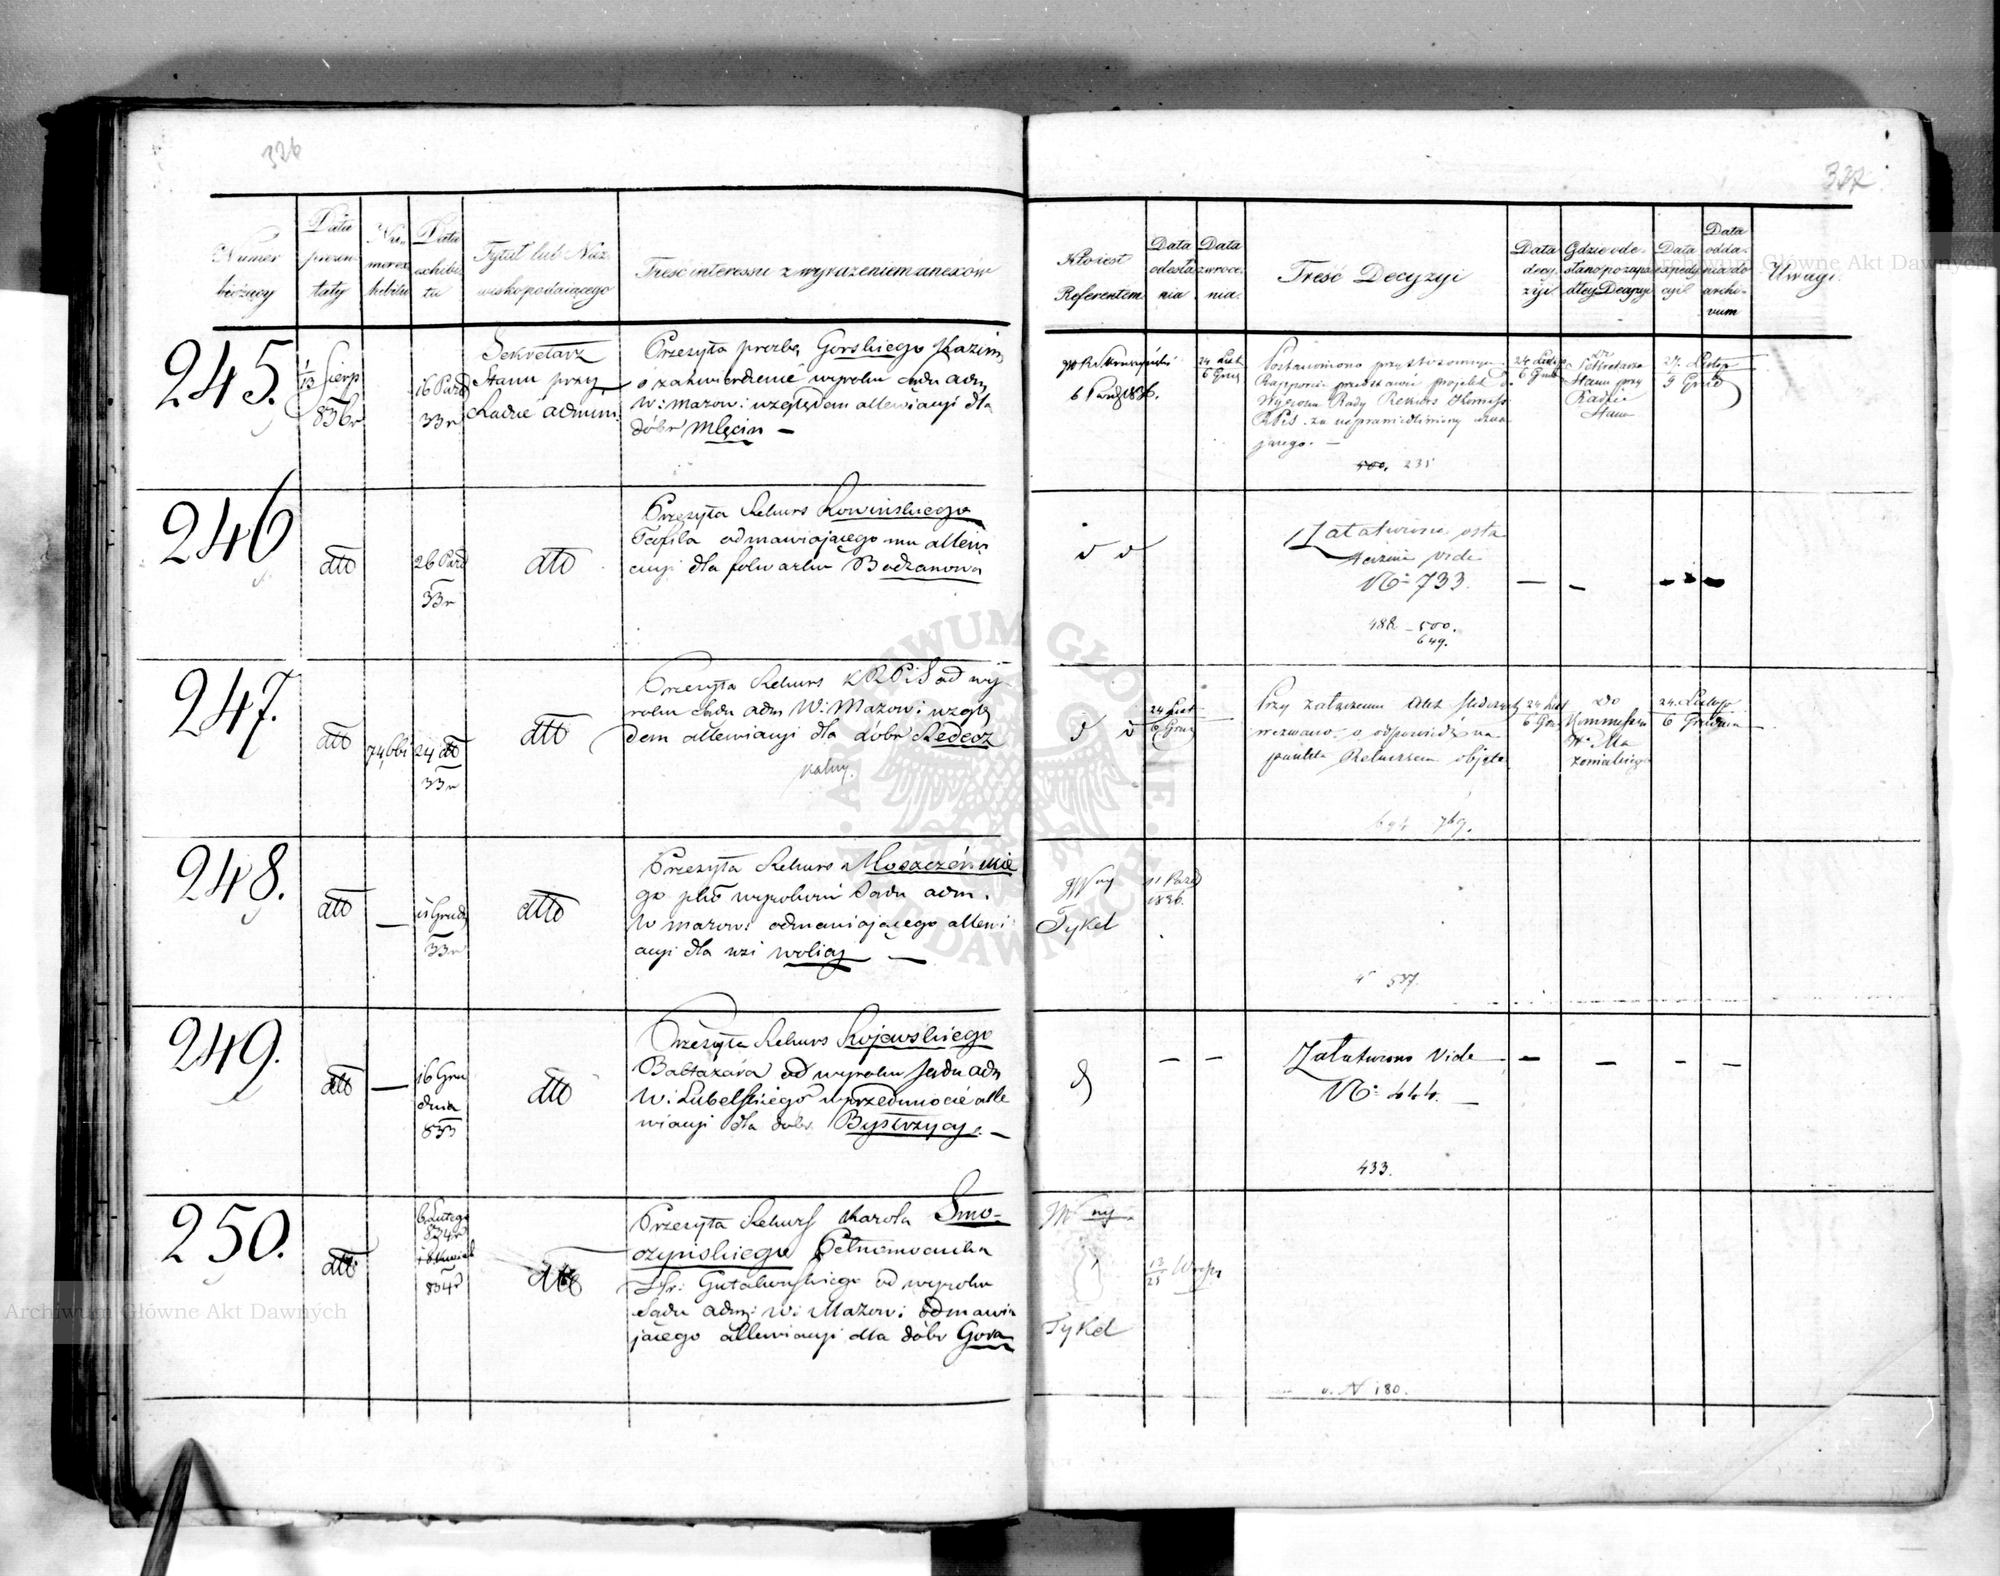 326
Numer
bieżący
Data
prezen-
taty
Nu-
mer ex-
hibitu
Data
exhibi-
tu
Tytuł lub Naz-
wisko podaiącego
Treść interessu z wyrażeniem anexów
245.
1/13 Sierp
836 r
16 Paźd
33 r
Sekretarz
Stanu przy
Radzie admini.
Przesyła prozbę Gorskiego Kazim
o zatwierdzenie wyroku Sądu adm
W: Mazow: względem allewiacyi dla
dóbr Mlęcin —
246
dtto
26 Paźd
33 r
dtto
Przesyła Rekurs
Teofila odmawiającego mu allewi
acyi dla folwarku Bodzanowa
247.
dtto
24 dtto
33 r
dtto
Przesyła Rekurs KRPiS od wy-
roku Sądu adm W: Mazow: wzglę
dem allewiacyi dla dóbr Redecz
kalny.
248.
dtto
—
11 Grud
33 r
dtto
Przesyła Rekurs Moszczeńskie
go plko wyrokowi Sądu adm.
W mazow: odmawiającego allewi
acyi dla wsi wolicy —
249.
dtto
—
16 Gru
dnia
833
dtto
Przesyła Rekurs Kojewskiego
Baltazara od wyroku Sądu adm
W: Lubelskiego w przedmiocie alle
wiacyi dla dóbr Bystrzycy. —
250.
dtto
6 Lutego
834 r
834 r
dtto
Przesyła Rekurs Karola Smo-
czyńskiego Pełnomocnika
Hr: Gutakowskiego od wyroku
Sądu adm: W: Mazow: odmawia
jącego allewiacyi dla dóbr Gora
337
Kto iest
Referentem
Data
odesła
nia
Data
zwroce-
nia.
Treść Decyzyi
Data
decy-
zyi
Gdzie ode-
słano po zapa-
dłey Decyzyi
Data
expedy-
cyi
Data
odda-
nia do
archi-
vum
Uwagi.
6 Paźd 836.
24 List
6 Grud
Postanowiono przy stosownym
Rapporcie przedstawić projekt do
Wyroku Rady Rekurs
KRPiS. za usprawiedliwiony uzna-
jącego. —
500. 235
24 Listop
6 Grud
Do
Sekretarza
Stanu przy
Radzie
Stanu
27. Listop
9 Grud
Załatwiono osta
tecznie vide
No 733.
488 – 500.
649.
24 List
6 Grud
Przy załączeniu Akt
wezwano, o odpowiedź na
punkta Rekursem objęte
694 769.
24 List
6 Gru
Do
Kommissyi
W. Ma
zowieckiego
24. Listop
6 Grudnia
Wny
Tykel
11 Paźd
1836.
537.
Załatwiono Vide
No 444. —
433.
Wny
Tykel
13/25
v. N 180.
ARCHIWUM GŁÓWNE AKT DAWNYCH
Archiwum Główne Akt Dawnych
Archiwum Główne Akt Dawnych